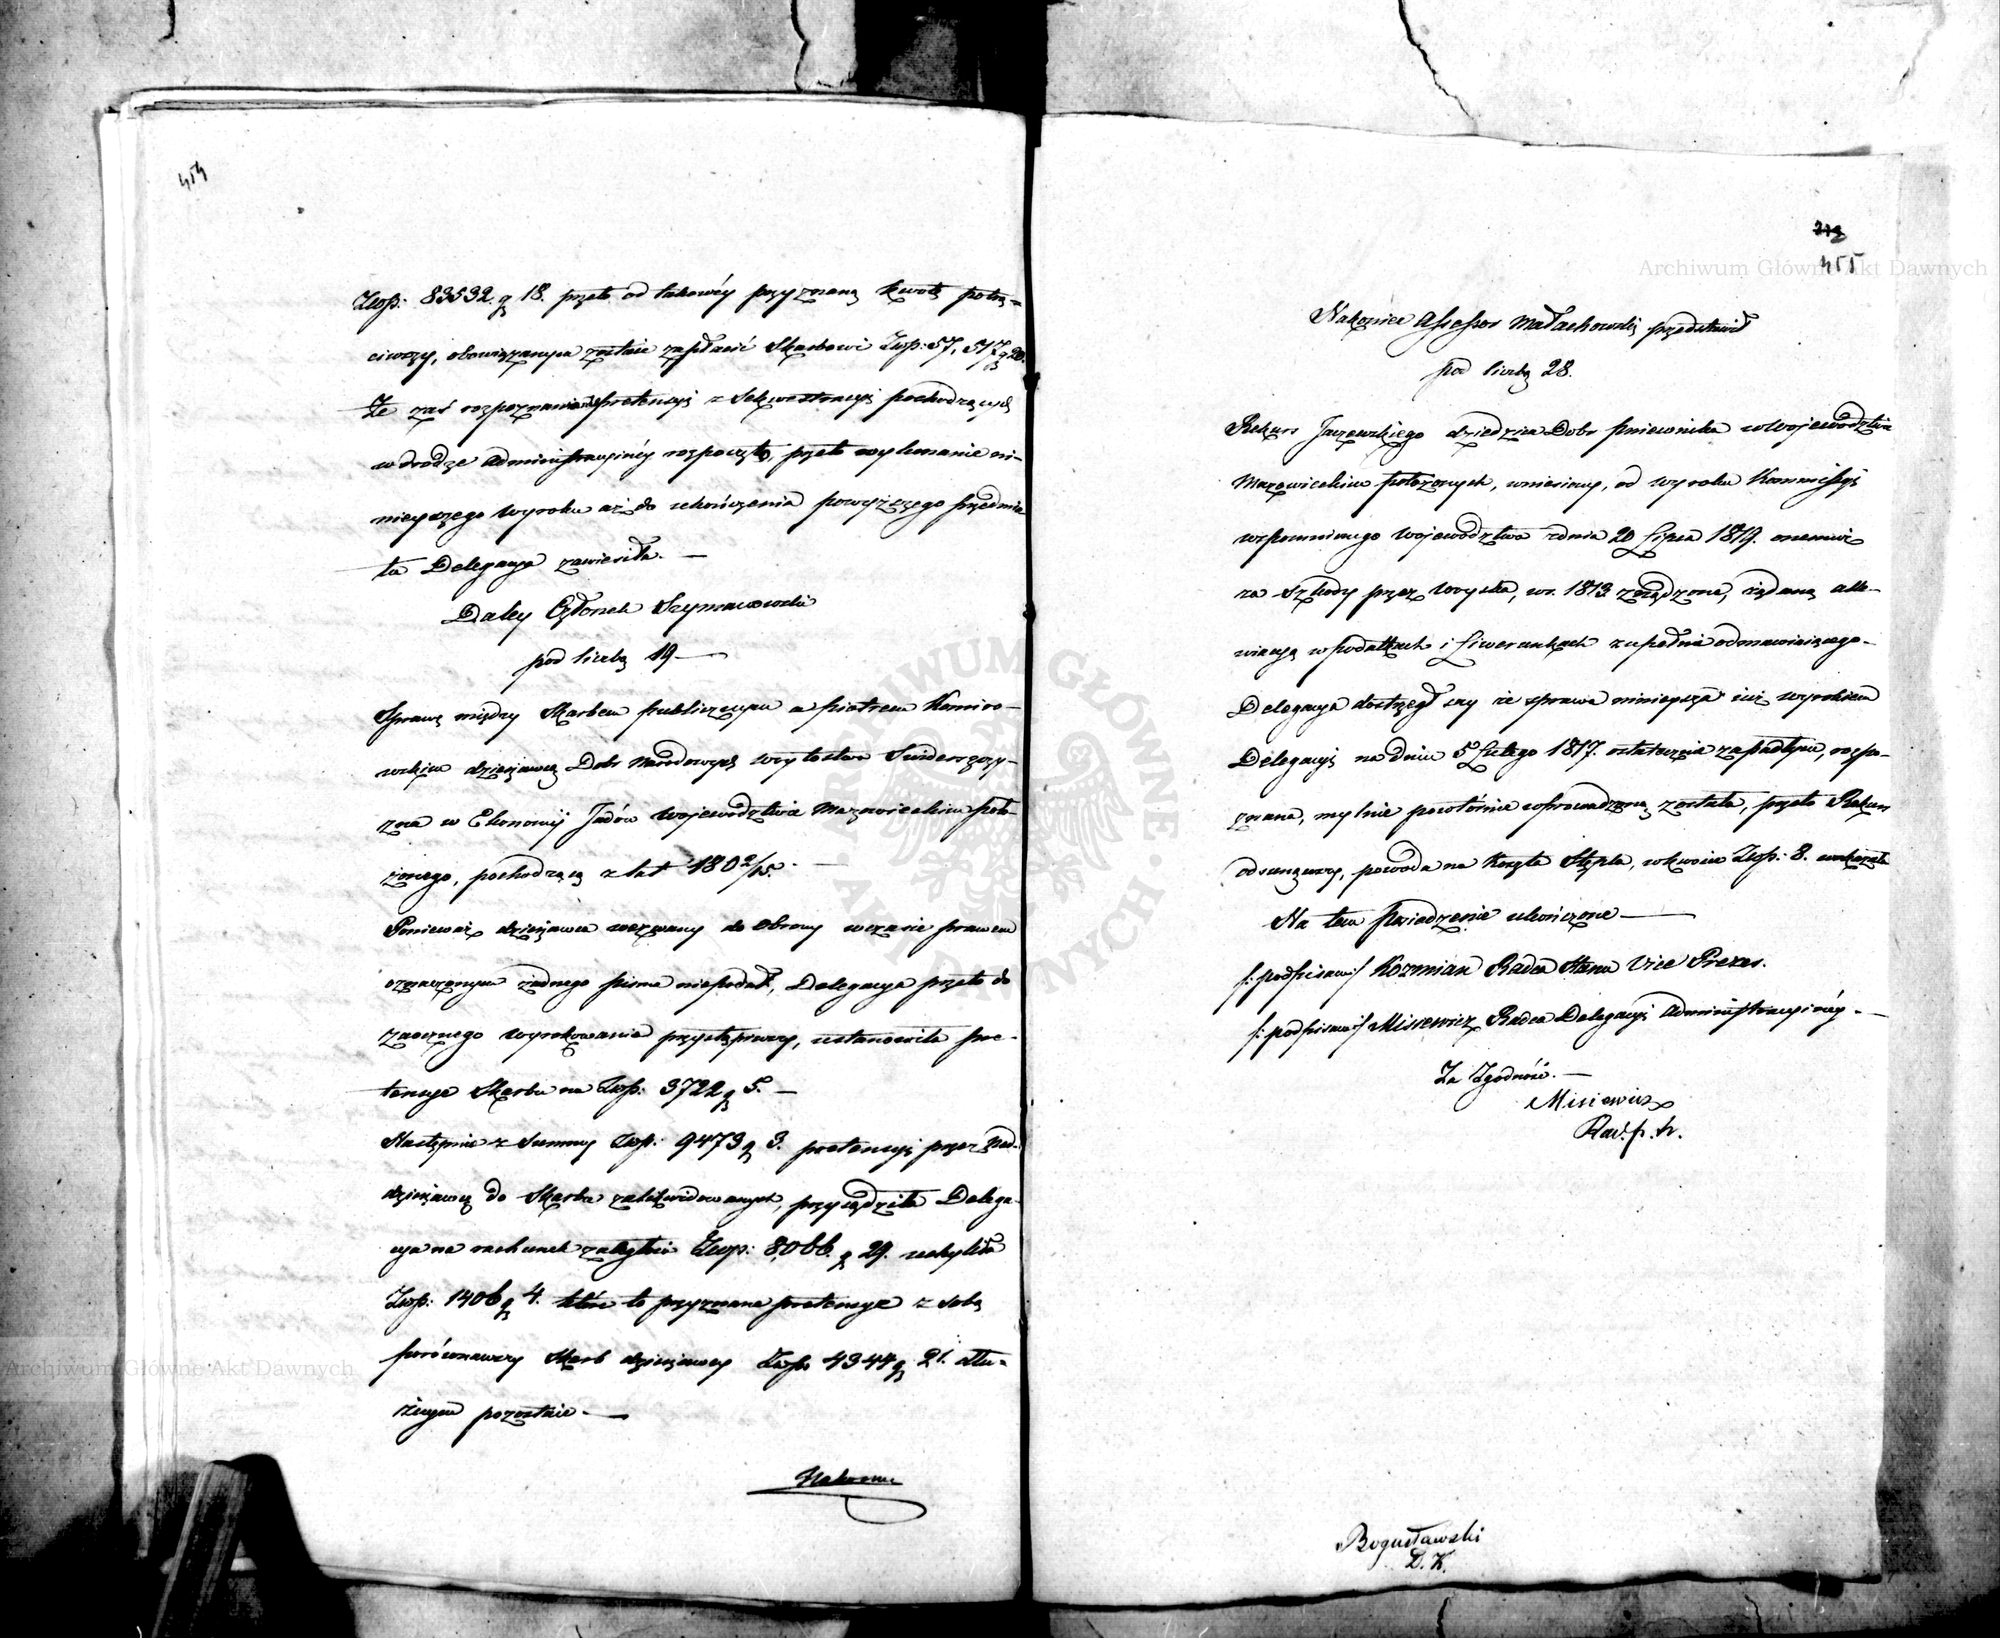 454
Złotp: 83532. g 18. przeto od takowéy przyznaną kwotę potrą=
ciwszy, obowiązanym zostaie zapłacić Skarbowi Złotp: 57,517 g 20.
Że zaś rozpoznanie pretensyi z Sekwestracyi pochodzących
w drodze administracyinéy rozpoczęto, przeto wykonanie ni-
nieyszego wyroku aż do ukończenia powyższego przedmio
tu Delegacya zawiesiła. —
Daley Członek Szymanowski
pod liczbą 19 —
Sprawę między Skarbem publicznym a Piotrem Komiro-
wskim dzierżawcą Dobr Narodowych Woytostwa Swiderszczy-
zna w Ekonomij Jadów Województwie Mazowieckim poło-
żonego, pochodzącą z lat 180 2/15. —
Ponieważ dzierżawca wezwany do Obrony w czasie prawem
oznaczonym żadnego pisma niepodał, Delegacya przeto do
zaocznego wyrokowania przystąpiwszy, ustanowiła pre-
tensye Skarbu na Złotp: 3722 g 5. —
Następnie z Summy Złotp: 9473 g 3. pretensyi przez
dzierżawcę do Skarbu zalikwidowanych, przysądziła Delega-
cya na rachunek zaległości Złotp: 8,066. g 29. uchyliła
Złotp: 1406 g 4. które to przyznane pretensye z sobą
porównawszy Skarb dzierżawcy Złotp: 4344 g 21. dłu-
żnym pozostaie. —
Nakoniec
455
Archiwum Główne Akt Dawnych
Nakoniec Assessor Małachowski przedstawił
pod liczbą 28.
Rekurs Jaczewskiego dziedzica Dobr Pniewnika w Województwie
Mazowieckim położonych, wniesiony, od wyroku Kommissyi
wspomnionego Województwa z dnia 20 Lipca 1819. onemuż
za Szkody przez Woyska, w r. 1813 zrządzone, żądaną alle-
wiacyą w podatkach i Liwerunkach zupełnie odmawiaiącego.
Delegacya dostrzegłszy że sprawa ninieysza iuż wyrokiem
Delegacyi na dniu 5 Lutego 1817. ostatecznie zapadłym, rozpo-
znana, mylnie powtórnie wprowadzoną została, przeto Rekurs
odsunąwszy, powoda na Koszta Stępla, w kwocie Złotp: 8. wskazała
Na tem posiedzenie ukończone —
/: podpisani :/ Kozmian Radca Stanu Vice Prezes.
/: podpisani :/ Misiewicz Radca Delegacyi Administracyinéy. —
Za Zgodność. —
Misiewicz
Rad. p. k.
Bogusławski
D. K.
Archiwum Główne Akt Dawnych
ARCHIWUM GŁÓWNE AKT DAWNYCH